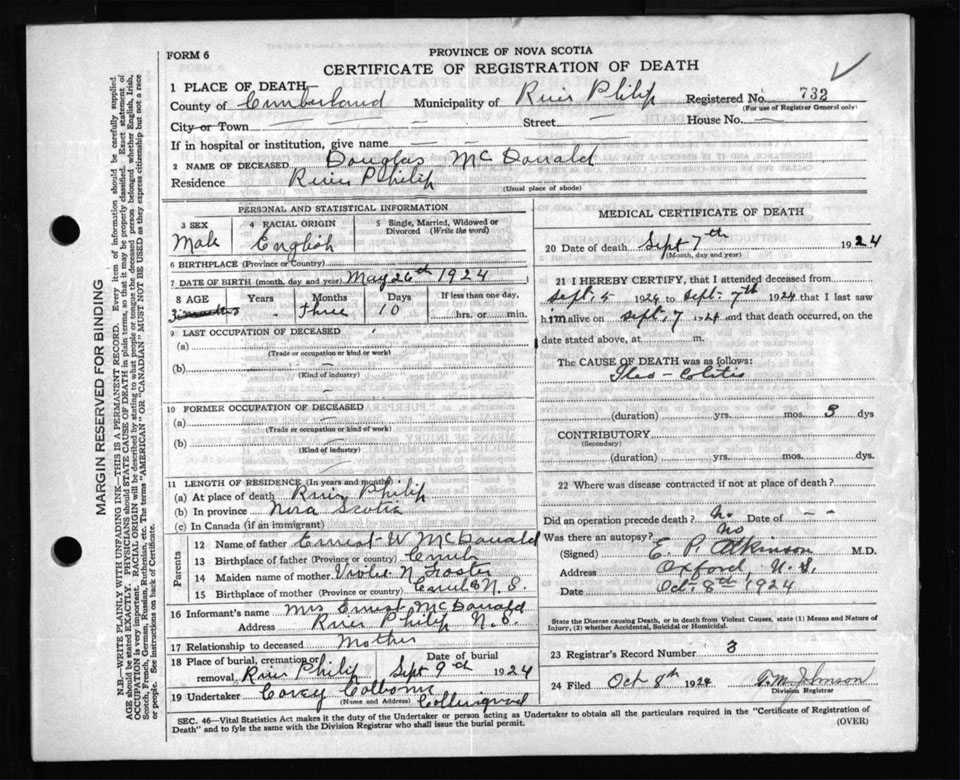 FORM 6
PROVINCE OF NOVA SCOTIA
CERTIFICATE OF REGISTRATION OF DEATH
1 PLACE OF DEATH—
County of Cumberland Municipality of River Philip Registered No. 732
(For use of Registrar General only)
City or Town — — — Street — House No. —
If in hospital or institution, give name — — —
2 NAME OF DECEASED Douglas McDonald
Residence River Philip
(Usual place of abode)
PERSONAL AND STATISTICAL INFORMATION
3 SEX 4 RACIAL ORIGIN 5 Single, Married, Widowed or Divorced (Write the word)
Male English
6 BIRTHPLACE (Province or Country)
7 DATE OF BIRTH (month, day and year) May 26th 1924
8 AGE Years Months Days If less than one day,
three 10 hrs. or min.
9 LAST OCCUPATION OF DECEASED
(a)
(Trade or occupation or kind or work)
(b)
(Kind of industry)
10 FORMER OCCUPATION OF DECEASED
(a)
(Trade or occupation or kind or work)
(b)
(Kind of industry)
11 LENGTH OF RESIDENCE (In years and months)
(a) At place of death River Philip
(b) In province Nova Scotia
(c) In Canada (if an immigrant)
Parents
12 Name of father Ernest W McDonald
13 Birthplace of father (Province or country) Cumb
14 Maiden name of mother N Foster
15 Birthplace of mother (Province or country) N.S.
16 Informant's name Mrs Ernest McDonald
Address River Philip N.S.
17 Relationship to deceased Mother
18 Place of burial, cremation or removal, River Philip Date of burial Sept 9th 1924
19 Undertaker Corey Colborne
(Name and Address) Collingwood
MEDICAL CERTIFICATE OF DEATH
20 Date of death Sept 7th 1924
(Month, day and year)
21 I HEREBY CERTIFY, that I attended deceased from
Sept. 5 1924 to Sept. 7th 1924 that I last saw
him alive on Sept. 7 1924 and that death occurred, on the
date stated above, at m.
The CAUSE OF DEATH was as follows:
Ileo-Colitis
(duration) yrs. mos. 3 dys
CONTRIBUTORY
(Secondary)
(duration) yrs. mos. dys.
22 Where was disease contracted if not at place of death?
Did an operation precede death? No Date of — —
Was there an autopsy? No
(Signed) E. P. Atkinson M.D.
Address Oxford N.S.
Date Oct. 8th 1924
State the Disease causing Death, or in death from Violent Causes, state (1) Means and Nature of
Injury, (2) whether Accidental, Suicidal or Homicidal.
23 Registrar's Record Number 3
24 Filed Oct 8th 1924 Johnson
Division Registrar
SEC. 46—Vital Statistics Act makes it the duty of the Undertaker or person acting as Undertaker to obtain all the particulars required in the "Certificate of Registration of
Death" and to fyle the same with the Division Registrar who shall issue the burial permit.
(OVER)
MARGIN RESERVED FOR BINDING
N.B.—WRITE PLAINLY WITH UNFADING INK—THIS IS A PERMANENT RECORD. Every item of information should be carefully supplied.
AGE should be stated EXACTLY. PHYSICIANS should STATE CAUSE OF DEATH in plain terms, so that it may be properly classified. Exact statement of
OCCUPATION is very important. RACIAL ORIGIN will be described by stating to what people or tongue the deceased person belonged whether English, Irish,
Scotch, French, German, Russian, Ruthenian, etc. The terms "AMERICAN" OR "CANADIAN" MUST NOT BE USED as they express citizenship but not a race
or people. See instructions on back of Certificate.